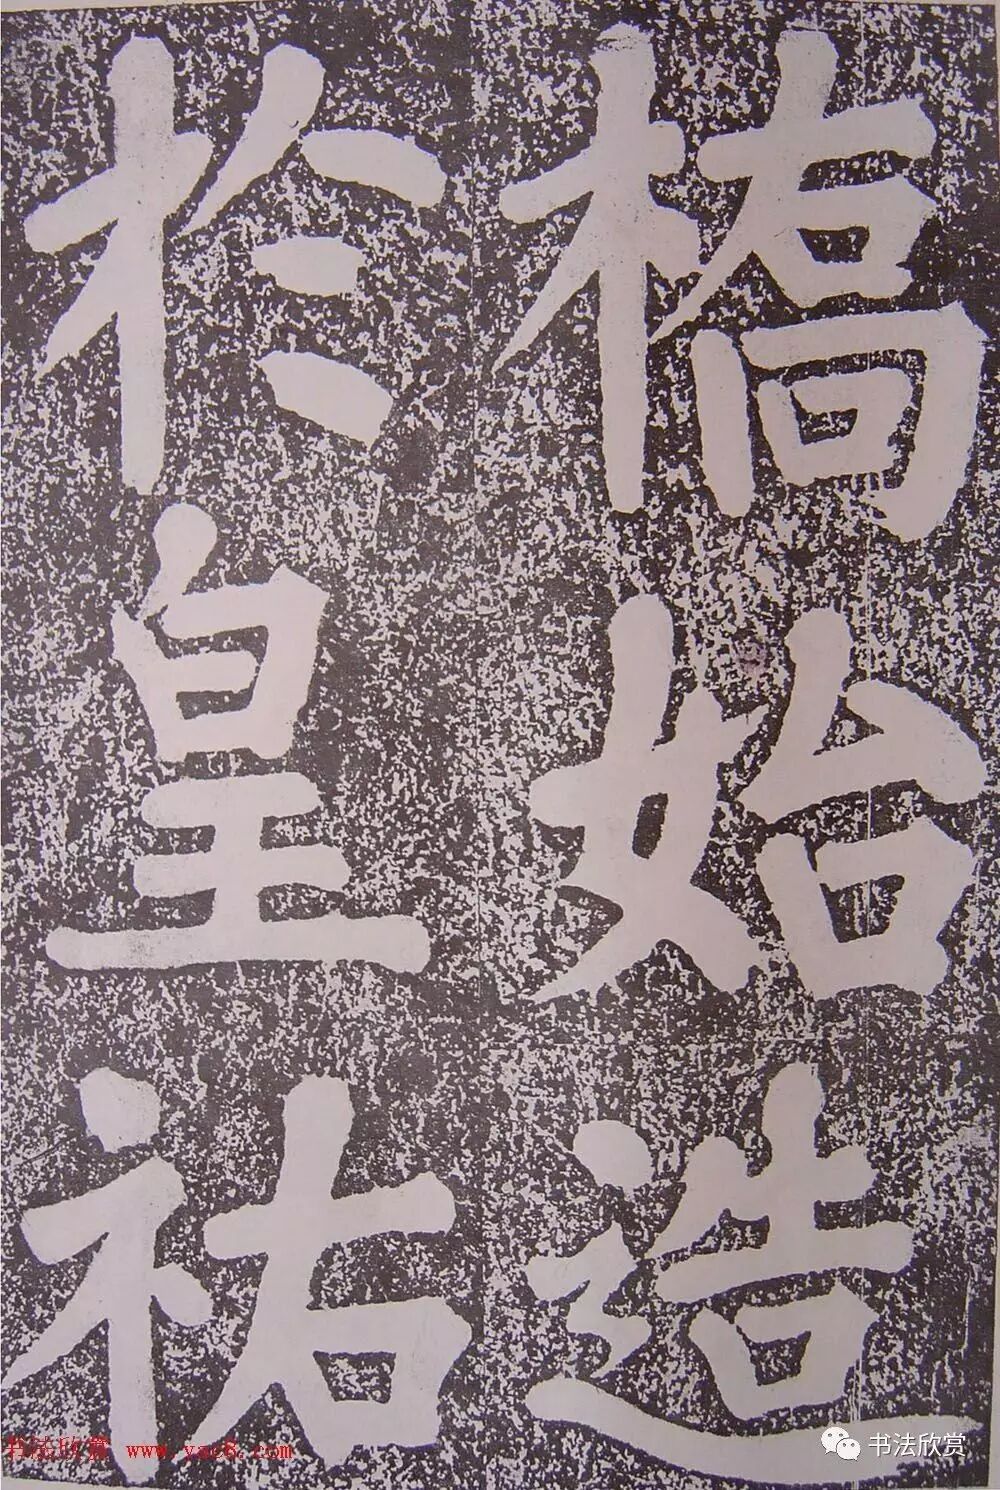 橋始造
於皇祐
书法欣赏 www.yac8.com
书法欣赏